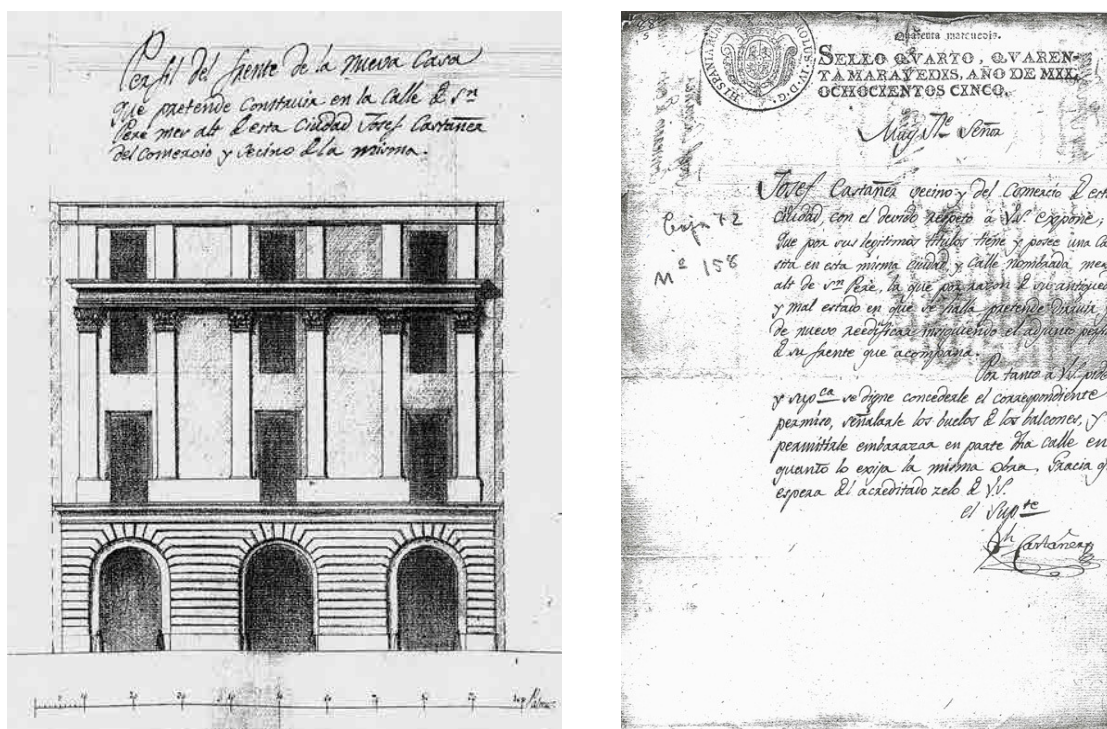 Perfil del frente de la nueva Casa
que pretende Construir en la Calle de Sn
Pere mes alt de esta Ciudad Josef Castañer
del Comercio y Vecino de la misma.
10 20 30 40 50 60 70 80 90 100 Palmos
HISPANIARUM CAROLUS IV D G
Quarenta maravedis.
SELLO QVARTO, QVAREN-
TA MARAVEDIS, AÑO DE MIL
OCHOCIENTOS CINCO.
Muy Ile Señor
Caja 72
Nº 158
Josef Castañer vecino y del Comercio de esta
Ciudad, con el devido respeto á V.S. expone;
Que por sus legitimos titulos tiene y posee una Ca
sita en esta misma Ciudad y Calle nombrada mes
alt de Sn Pere, la que por razon de su antigued
y mal estado en que se halla pretende
de nuevo reedificar el adjunto
de su frente que acompaña.
Por tanto á V.S.
y supca se digne concederle el correspondiente
permiso, señalarle los buelos de los balcones, y
permitirle embarazar en parte dha calle en
quanto lo exija la misma obra, Gracia q
espera del acreditado zelo de V.S.
el Supte
Jph Castañer